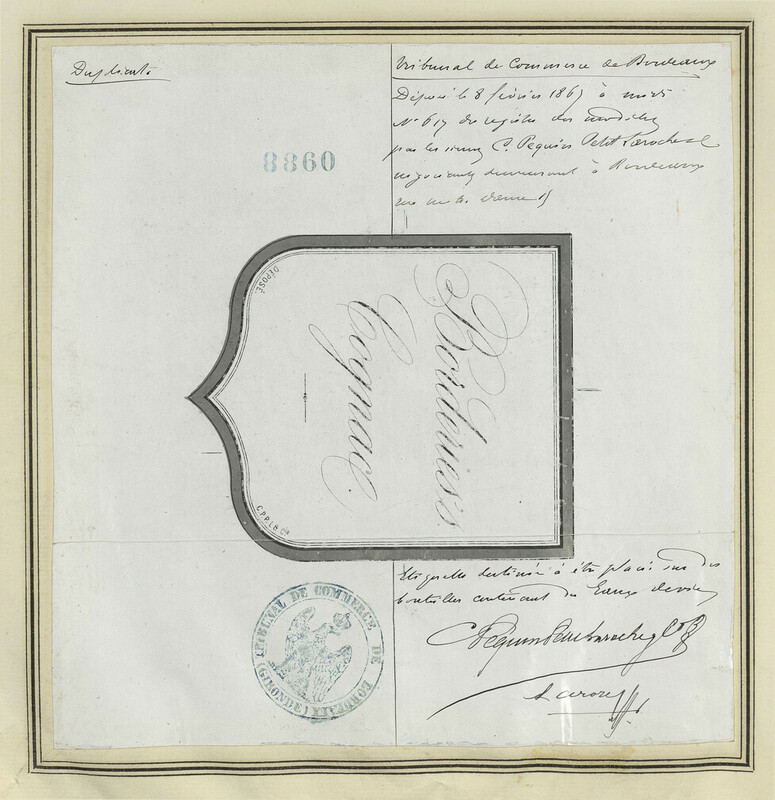 Duplicata
8860
Tribunal de Commerce de Bordeaux
Déposé le 8 février 186 à midi
N° 617 du registre des modèles
par les sieurs C. Pequin Petit Laroche &
négociants demeurant à Bordeaux
rue
DÉPOSÉ.
Borderies.
Cognac.
C.P.P.L & Cie
Etiquette destinée à être placée sur des
bouteilles contenant des Eaux de vie
C Pequin Petit Laroche & Co
TRIBUNAL DE COMMERCE DE BORDEAUX (GIRONDE)